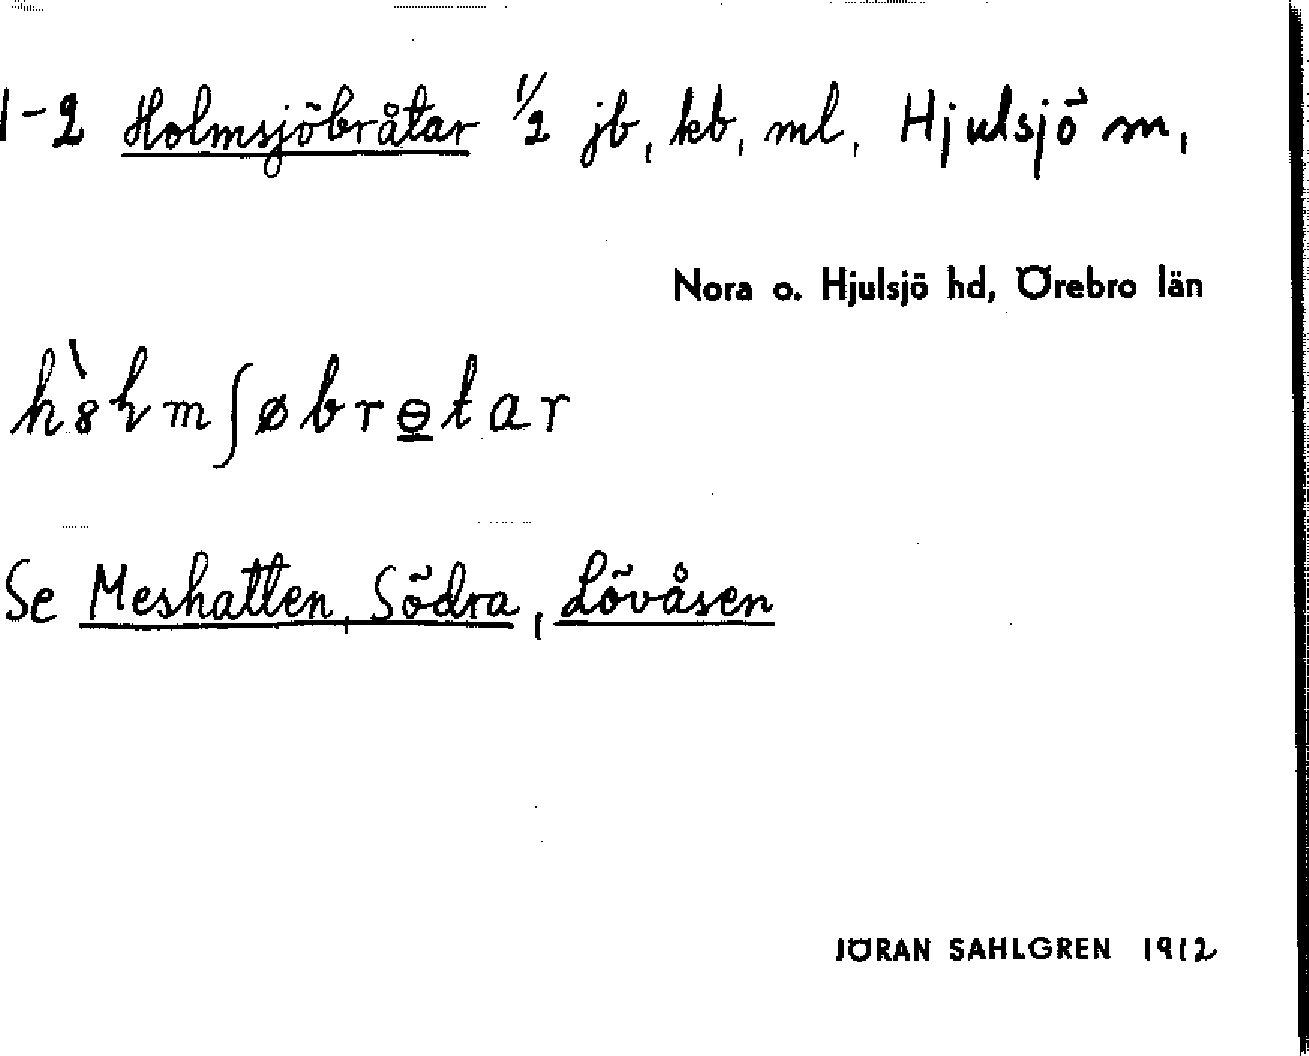 1-2 Holmsjöbråtar 1/2 jb, kb, ml, Hjulsjö sn,
Nora o. Hjulsjö hd, Örebro län
h8̀ɬmʃøbrɵ̲tar
Se Meshatten, Södra, Lövåsen
JÖRAN SAHLGREN 1912